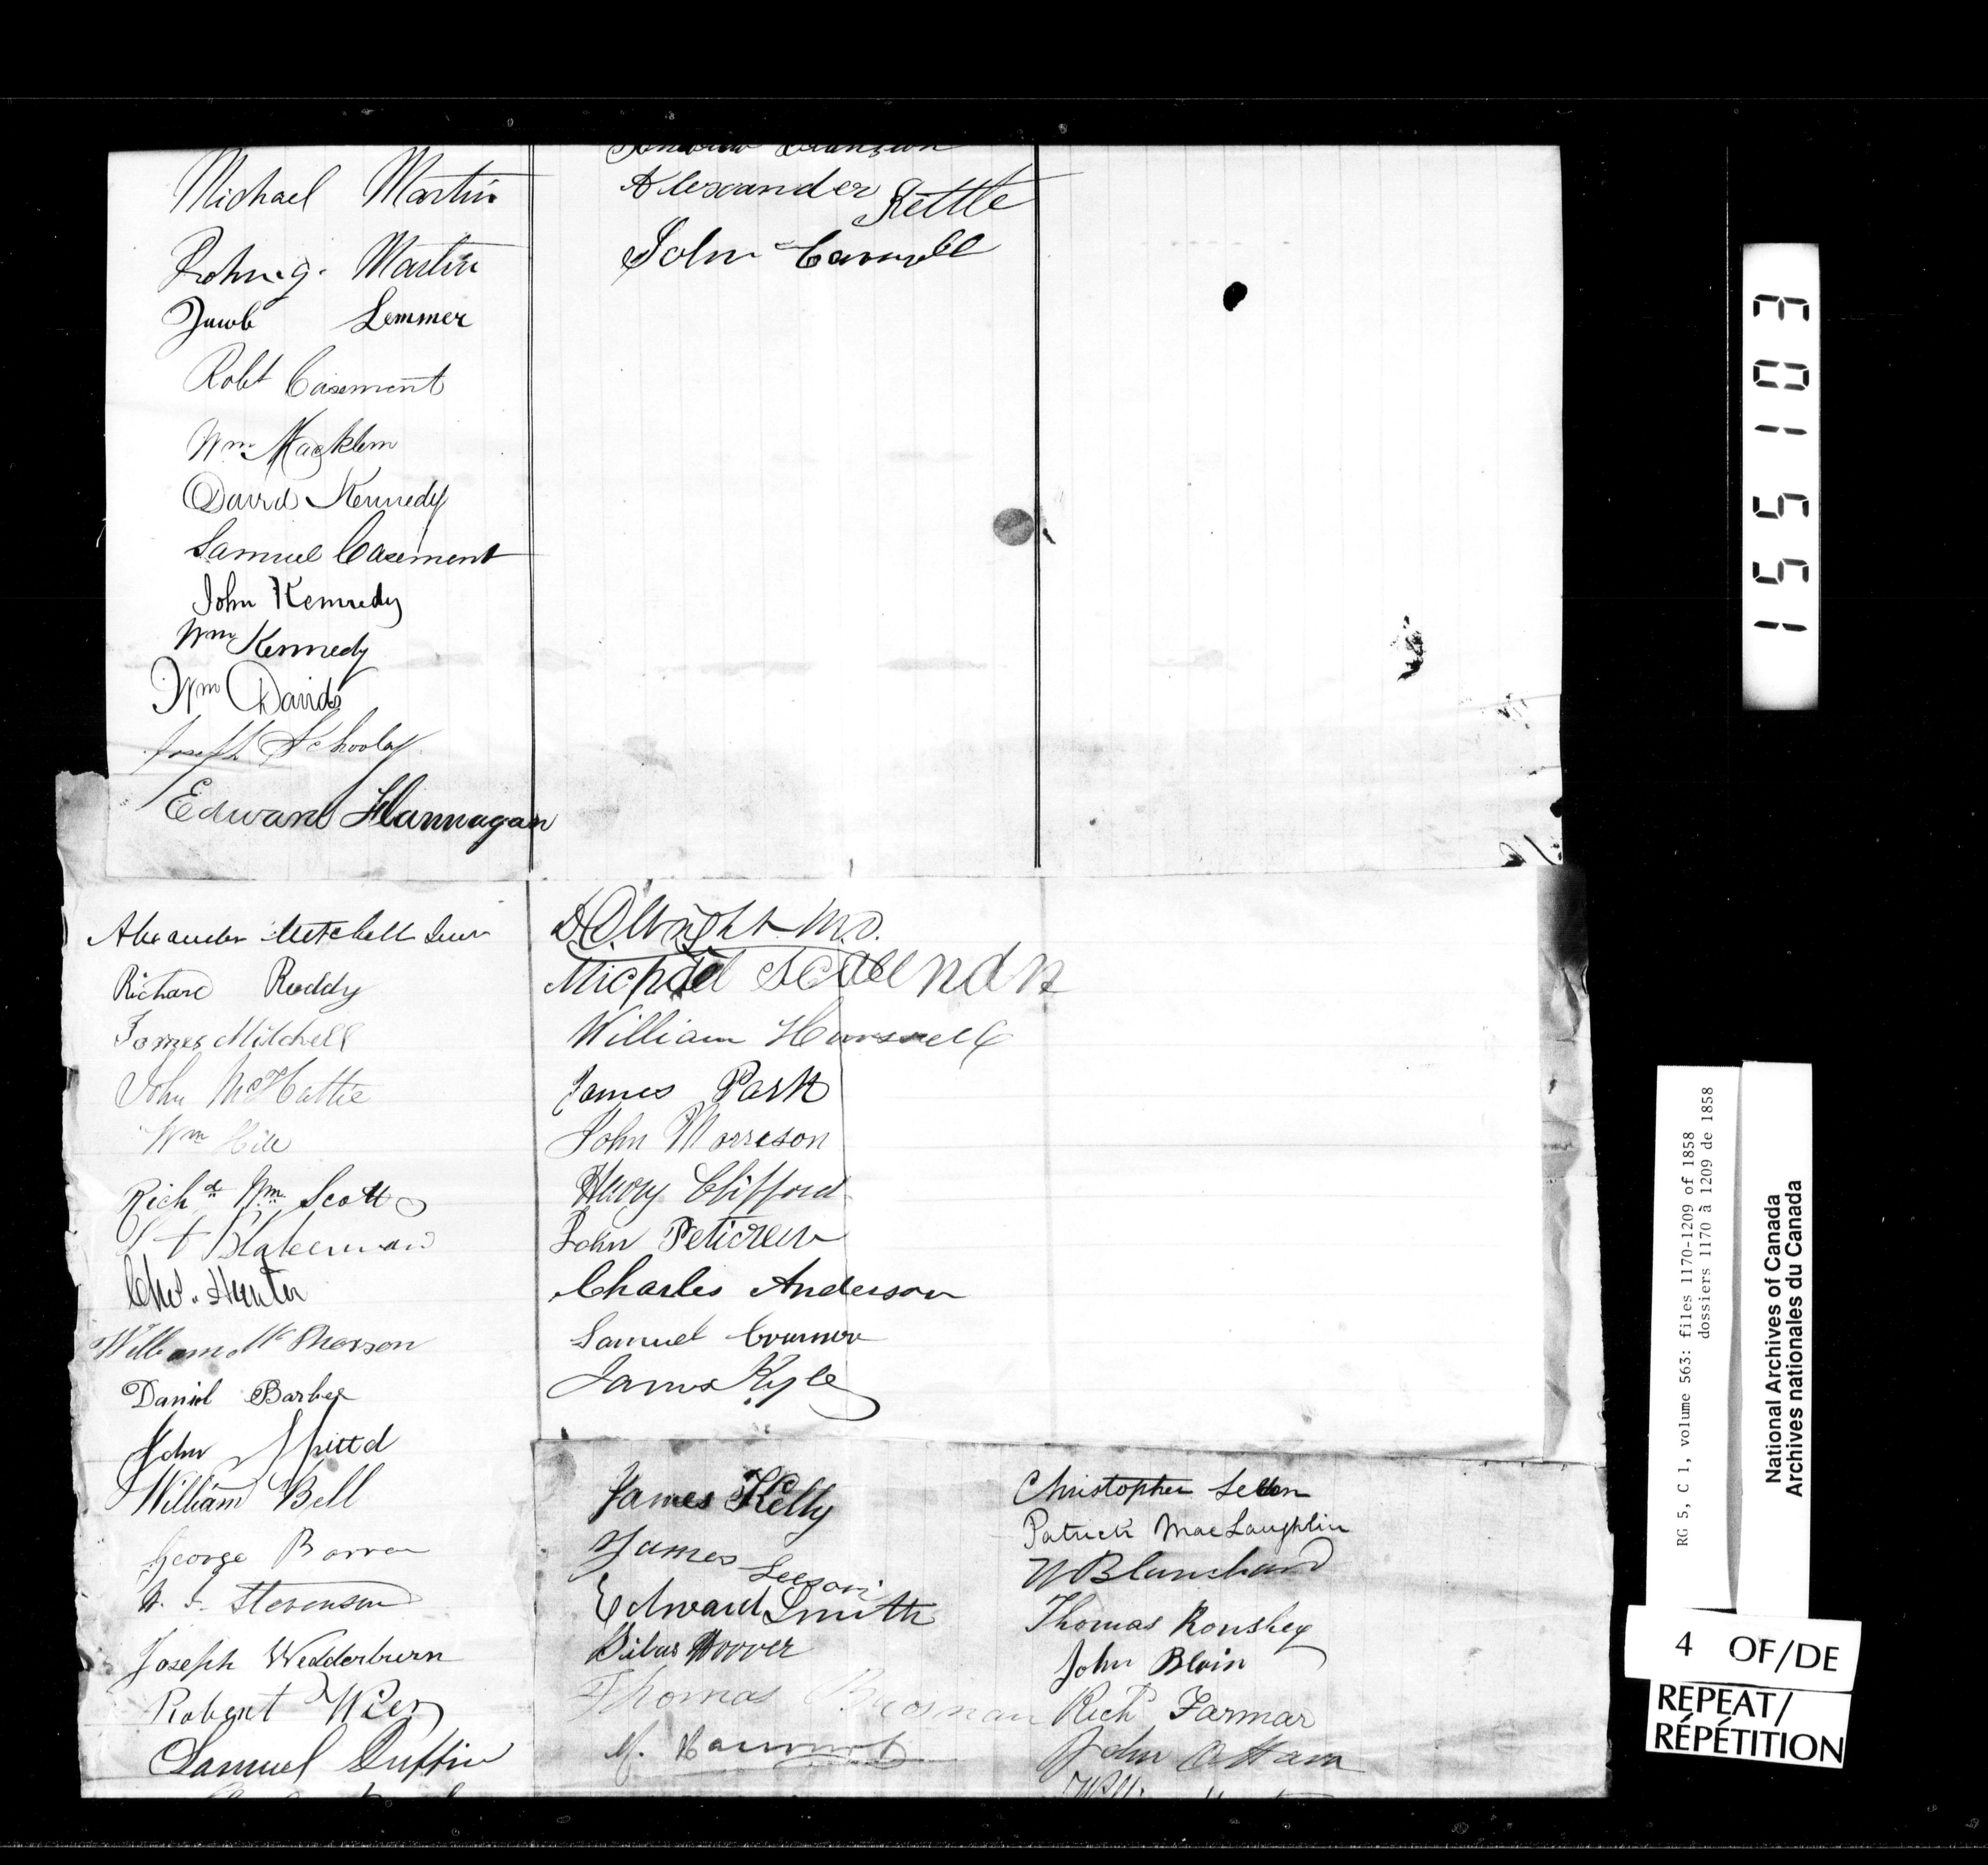 Michael Martin
John G. Martin
Jacob Lemmer
Robt Casement
Wm Macklem
David Kennedy
Samuel Casement
John Kennedy
Wm Kennedy
Wm Davids
Joseph Schooley
Edward Hannagan
Alexander Kettle
John
Alexander Mitchell
Richard Ruddy
James Mitchell
John McHattie
Wm Hill
Richd Wm Scott
Blakeman
Chs. Hunter
William McPherson
Daniel Barber
John
William Bell
George Barron
Stevenson
Joseph Wedderburn
Robert Weir
Samuel Duffin
Wright M.D.
Michael
William
James Park
John Morreson
Harry Clifford
John Peticrew
Charles Anderson
Samuel
James Kyle
James Kelly
James Leeson
Edward Smith
Hoover
Thomas Brosnan
M.
Christopher
Patrick MacLaughlin
W Blanchard
Thomas Ronshey
John Blain
Richd Farmar
John
155103
RG 5, C 1, volume 563: files 1170-1209 of 1858
dossiers 1170 à 1209 de 1858
National Archives of Canada
Archives nationales du Canada
4 OF/DE
REPEAT/
RÉPÉTITION